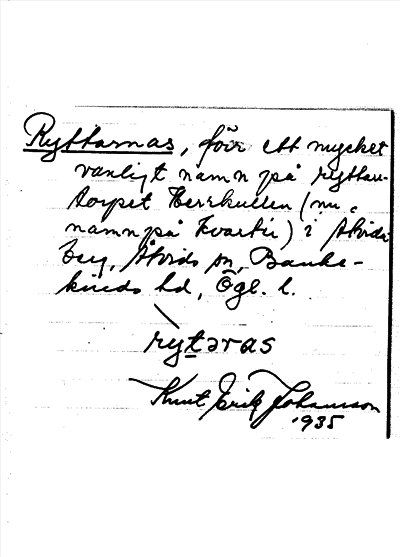 Ryttarnas, förr ett mycket
vanligt namn på ryttare-
torpet Herrkullen (nu
namn på kvarter) i Åtvida-
berg, Åtvids sn, Banke-
kinds hd, Ögl. l.
rytəras
Knut Erik Johansson
1935